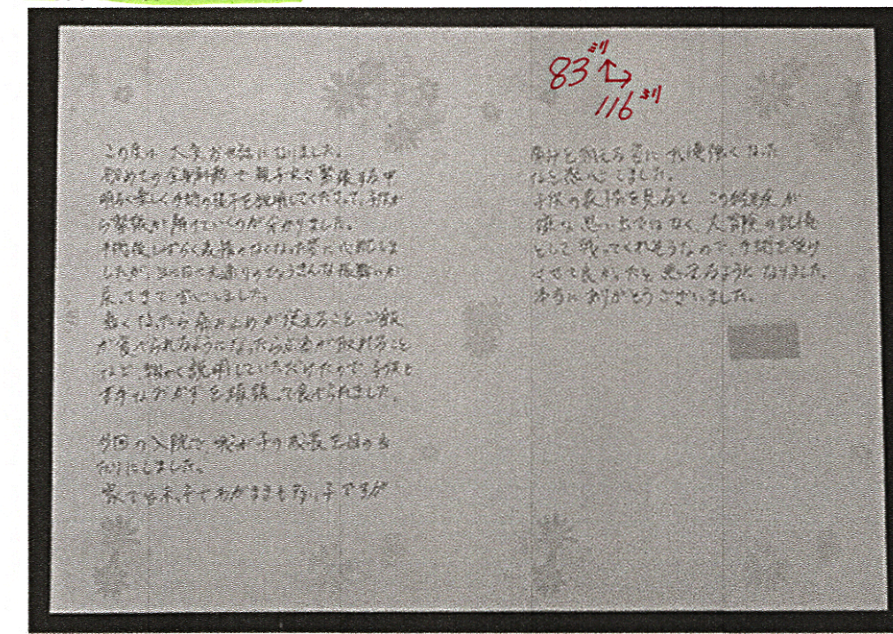 83ミリ
116ミリ
この度は大変お世話になりました。
初めての全身麻酔で親子共々緊張する中
明るく楽しく手術の様子を説明してくださって、子供か
ら緊張が解けていくのが分かりました。
手術後しばらく表情のなくなった
したが、
戻ってきて安心しました。
痛くなったら痛み止めが使えること、ご飯
が食べられるようになったら点滴が取れること
など、細かく説明していただけたので、子供と
頑張って食べられました。
今回の入院で、我が子の成長を目の当
たりにしました。
家では末っ子でわがままも多い子ですが
我慢強くなった
なと感心しました。
子供の表情を見ると、この経験が
嫌な思い出ではなく、大冒険の記憶
として残ってくれそうなので、手術を受け
させて良かったと思えるようになりました。
本当にありがとうございました。